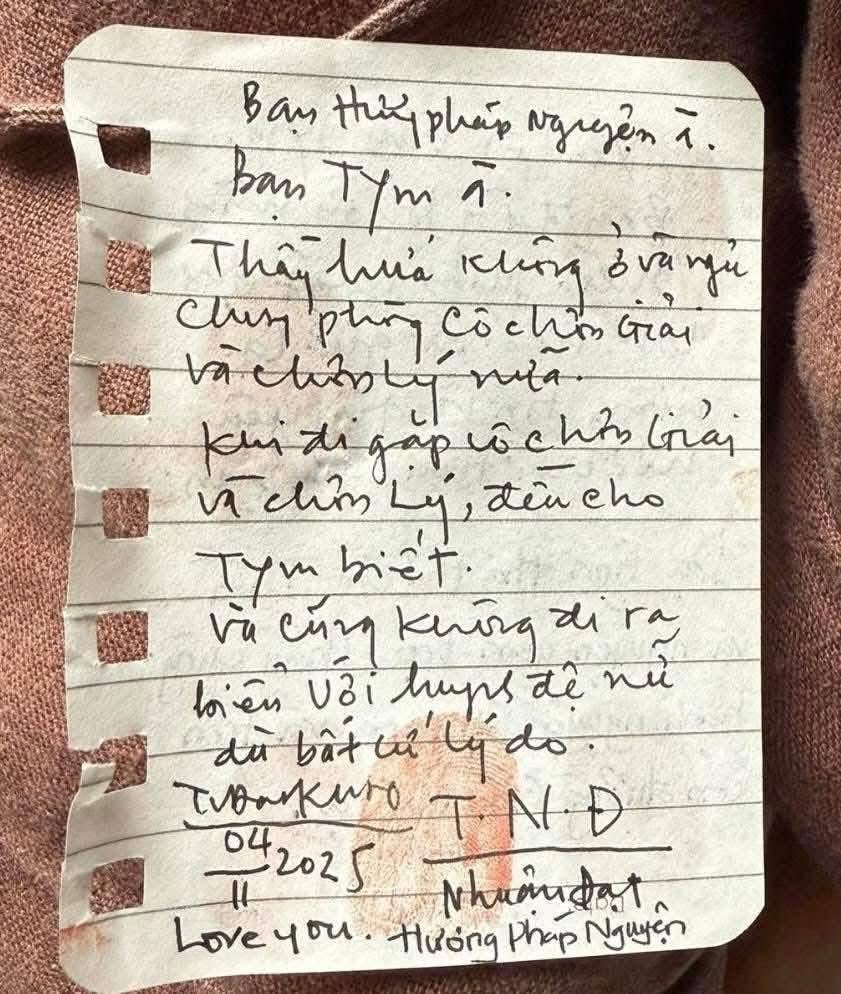 Bạn Hương pháp Nguyện à.
Bạn Tym à.
Thầy hứa không ở và ngủ
chung phòng cô chơn Giải
và chơn Lý nữa.
Khi đi gặp cô chơn Giải
và chơn Lý, đều cho
Tym biết.
và cũng không đi ra
biển với huynh đệ nữ
dù bất cứ lý do.
T.N.Đ
04/11 2025
Nhuận Đạt
Love you. Hương Pháp Nguyện